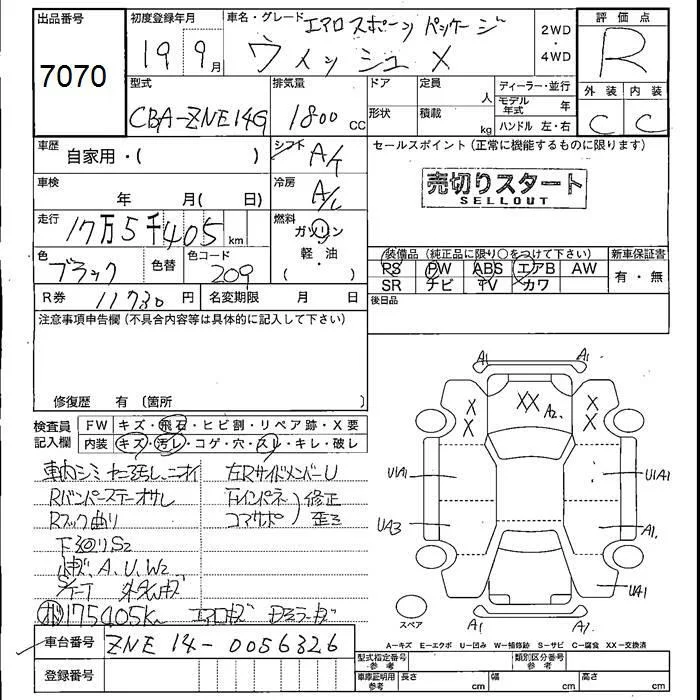 出品番号
7070
初度登録年月
19 9月
車名・グレード
エアロスポーツパッケージ
ウィッシュ X
2WD
・
4WD
評価点
R
外装 内装
C C
型式
CBA-ZNE14G
排気量
1800 cc
ドア
形状
定員
人
積載
kg
ディーラー・並行
モデル年式 年
ハンドル 左・右
車歴
自家用・( )
シフト
A/T
車検
年 月( 日)
冷房
A/C
走行
17万5千405 km
燃料
ガソリン
軽・油
( )
色
ブラック
色替
色コード
209
R券 11730 円
名変期限 月 日
セールスポイント (正常に機能するものに限ります)
売切りスタート
SELLOUT
装備品 (純正品に限り○をつけて下さい)
新車保証書
PS PW ABS エアB AW
SR ナビ TV カワ
有・無
後日品
注意事項申告欄 (不具合内容等は具体的に記入して下さい)
修復歴 有 (箇所 )
検査員
記入欄
FW キズ・飛石・ヒビ割・リペア跡・X要
内装 キズ・汚レ・コゲ・穴・スレ・キレ・破レ
車内シミ ヤニ汚レ、ニオイ
左RサイドメンバーU
Rバンパーステーオサレ
下インパネ 修正
Rフック曲り
コアサポ 歪ミ
下廻りS2
小キズ、A、U、W2
175405Km エアロキズ
車台番号 ZNE 14-0056326
登録番号
A1 A1
XX A2
X X
X X
UA1 UA1
UA3 A1
UA1
A1 A1
スペア
A-キズ E-エクボ U-凹み W-補修跡 S-サビ C-腐食 XX-交換済
型式指定番号
参考
類別区分番号
参考
車庫証明用
参考
長さ cm 幅 cm 高さ cm